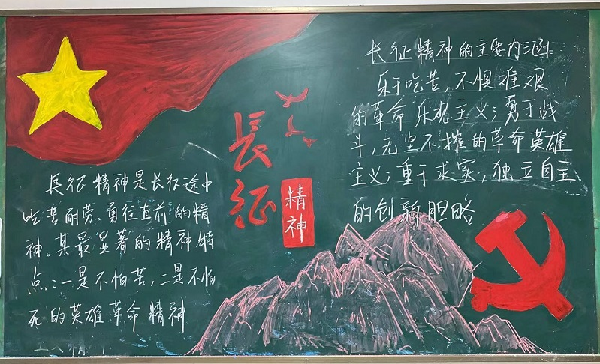 長征
精神
長征精神是长征途中
吃苦耐劳、勇往直前的精
神。其最显著的精神特
点:一是不怕苦,二是不怕
死的英雄革命精神
长征精神的主要内涵:
乐于吃苦,不惧艰难
的革命乐观主义;勇于战
斗,无坚不摧的革命英雄
主义;重于求实,独立自主
的创新胆略